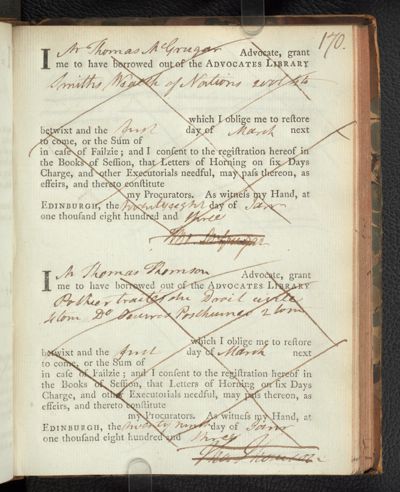 170.
I Mr Thomas McGrugar Advocate, grant
me to have borrowed out of the ADVOCATES LIBRARY
Smiths Wealth of Nations 2 vol 4to
which I oblige me to restore
betwixt and the first day of March next
to come, or the Sum of
in case of Failzie; and I consent to the registration hereof in
the Books of Session, that Letters of Horning on six Days
Charge, and other Executorials needful, may pass thereon, as
effeirs, and thereto constitute
my Procurators. As witness my Hand, at
EDINBURGH, the twentyeight day of Janr
one thousand eight hundred and three
I Mr Thomas Thomson Advocate, grant
me to have borrowed out of the ADVOCATES LIBRARY
Pothier traités de Droit
4 tom Do Oeuvres Posthumes 2 tom
which I oblige me to restore
betwixt and the first day of March next
to come, or the Sum of
in case of Failzie; and I consent to the registration hereof in
the Books of Session, that Letters of Horning on six Days
Charge, and other Executorials needful, may pass thereon, as
effeirs, and thereto constitute
my Procurators. As witness my Hand, at
EDINBURGH, the twenty nint day of Janr
one thousand eight hundred and three
Tho Thomson